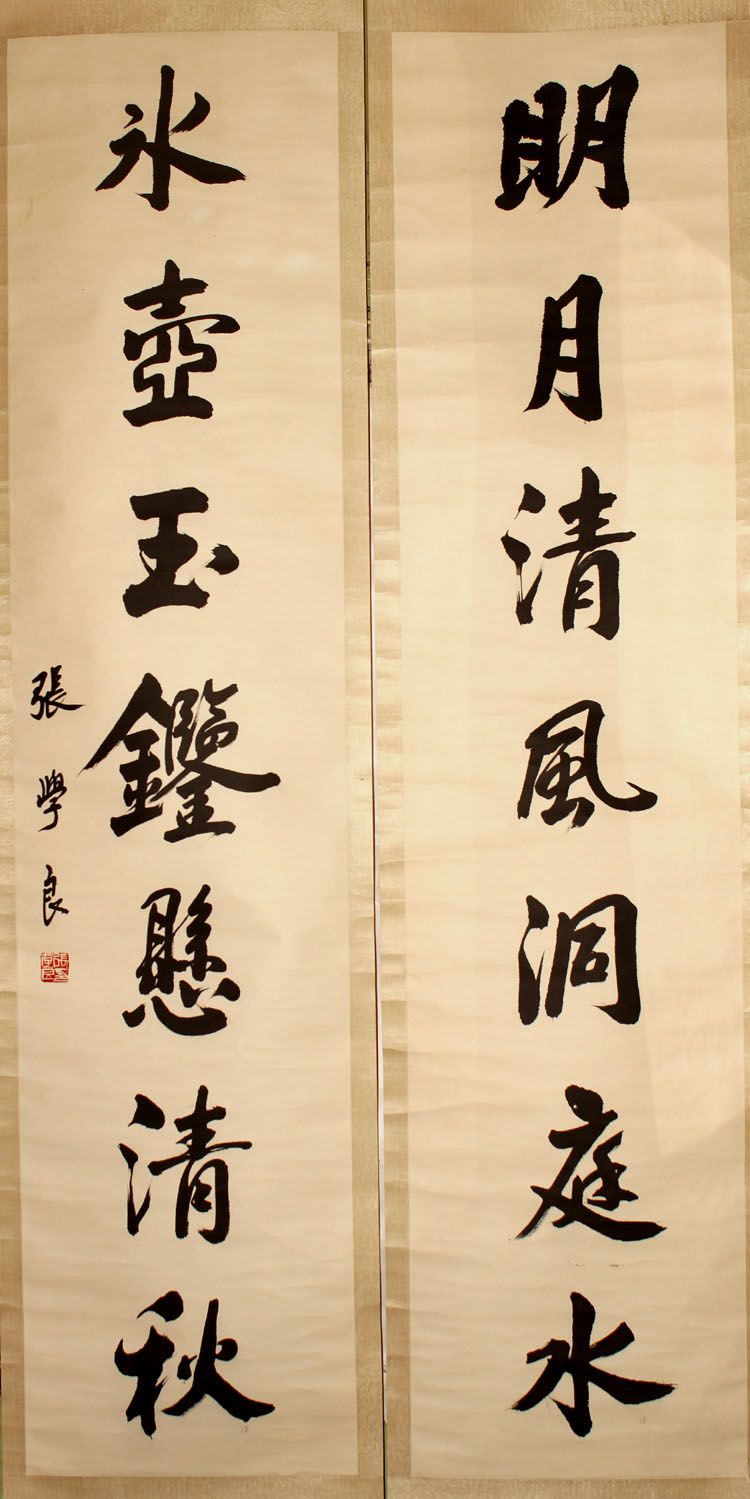 明月清風洞庭水
冰壺玉鑑懸清秋
張學良